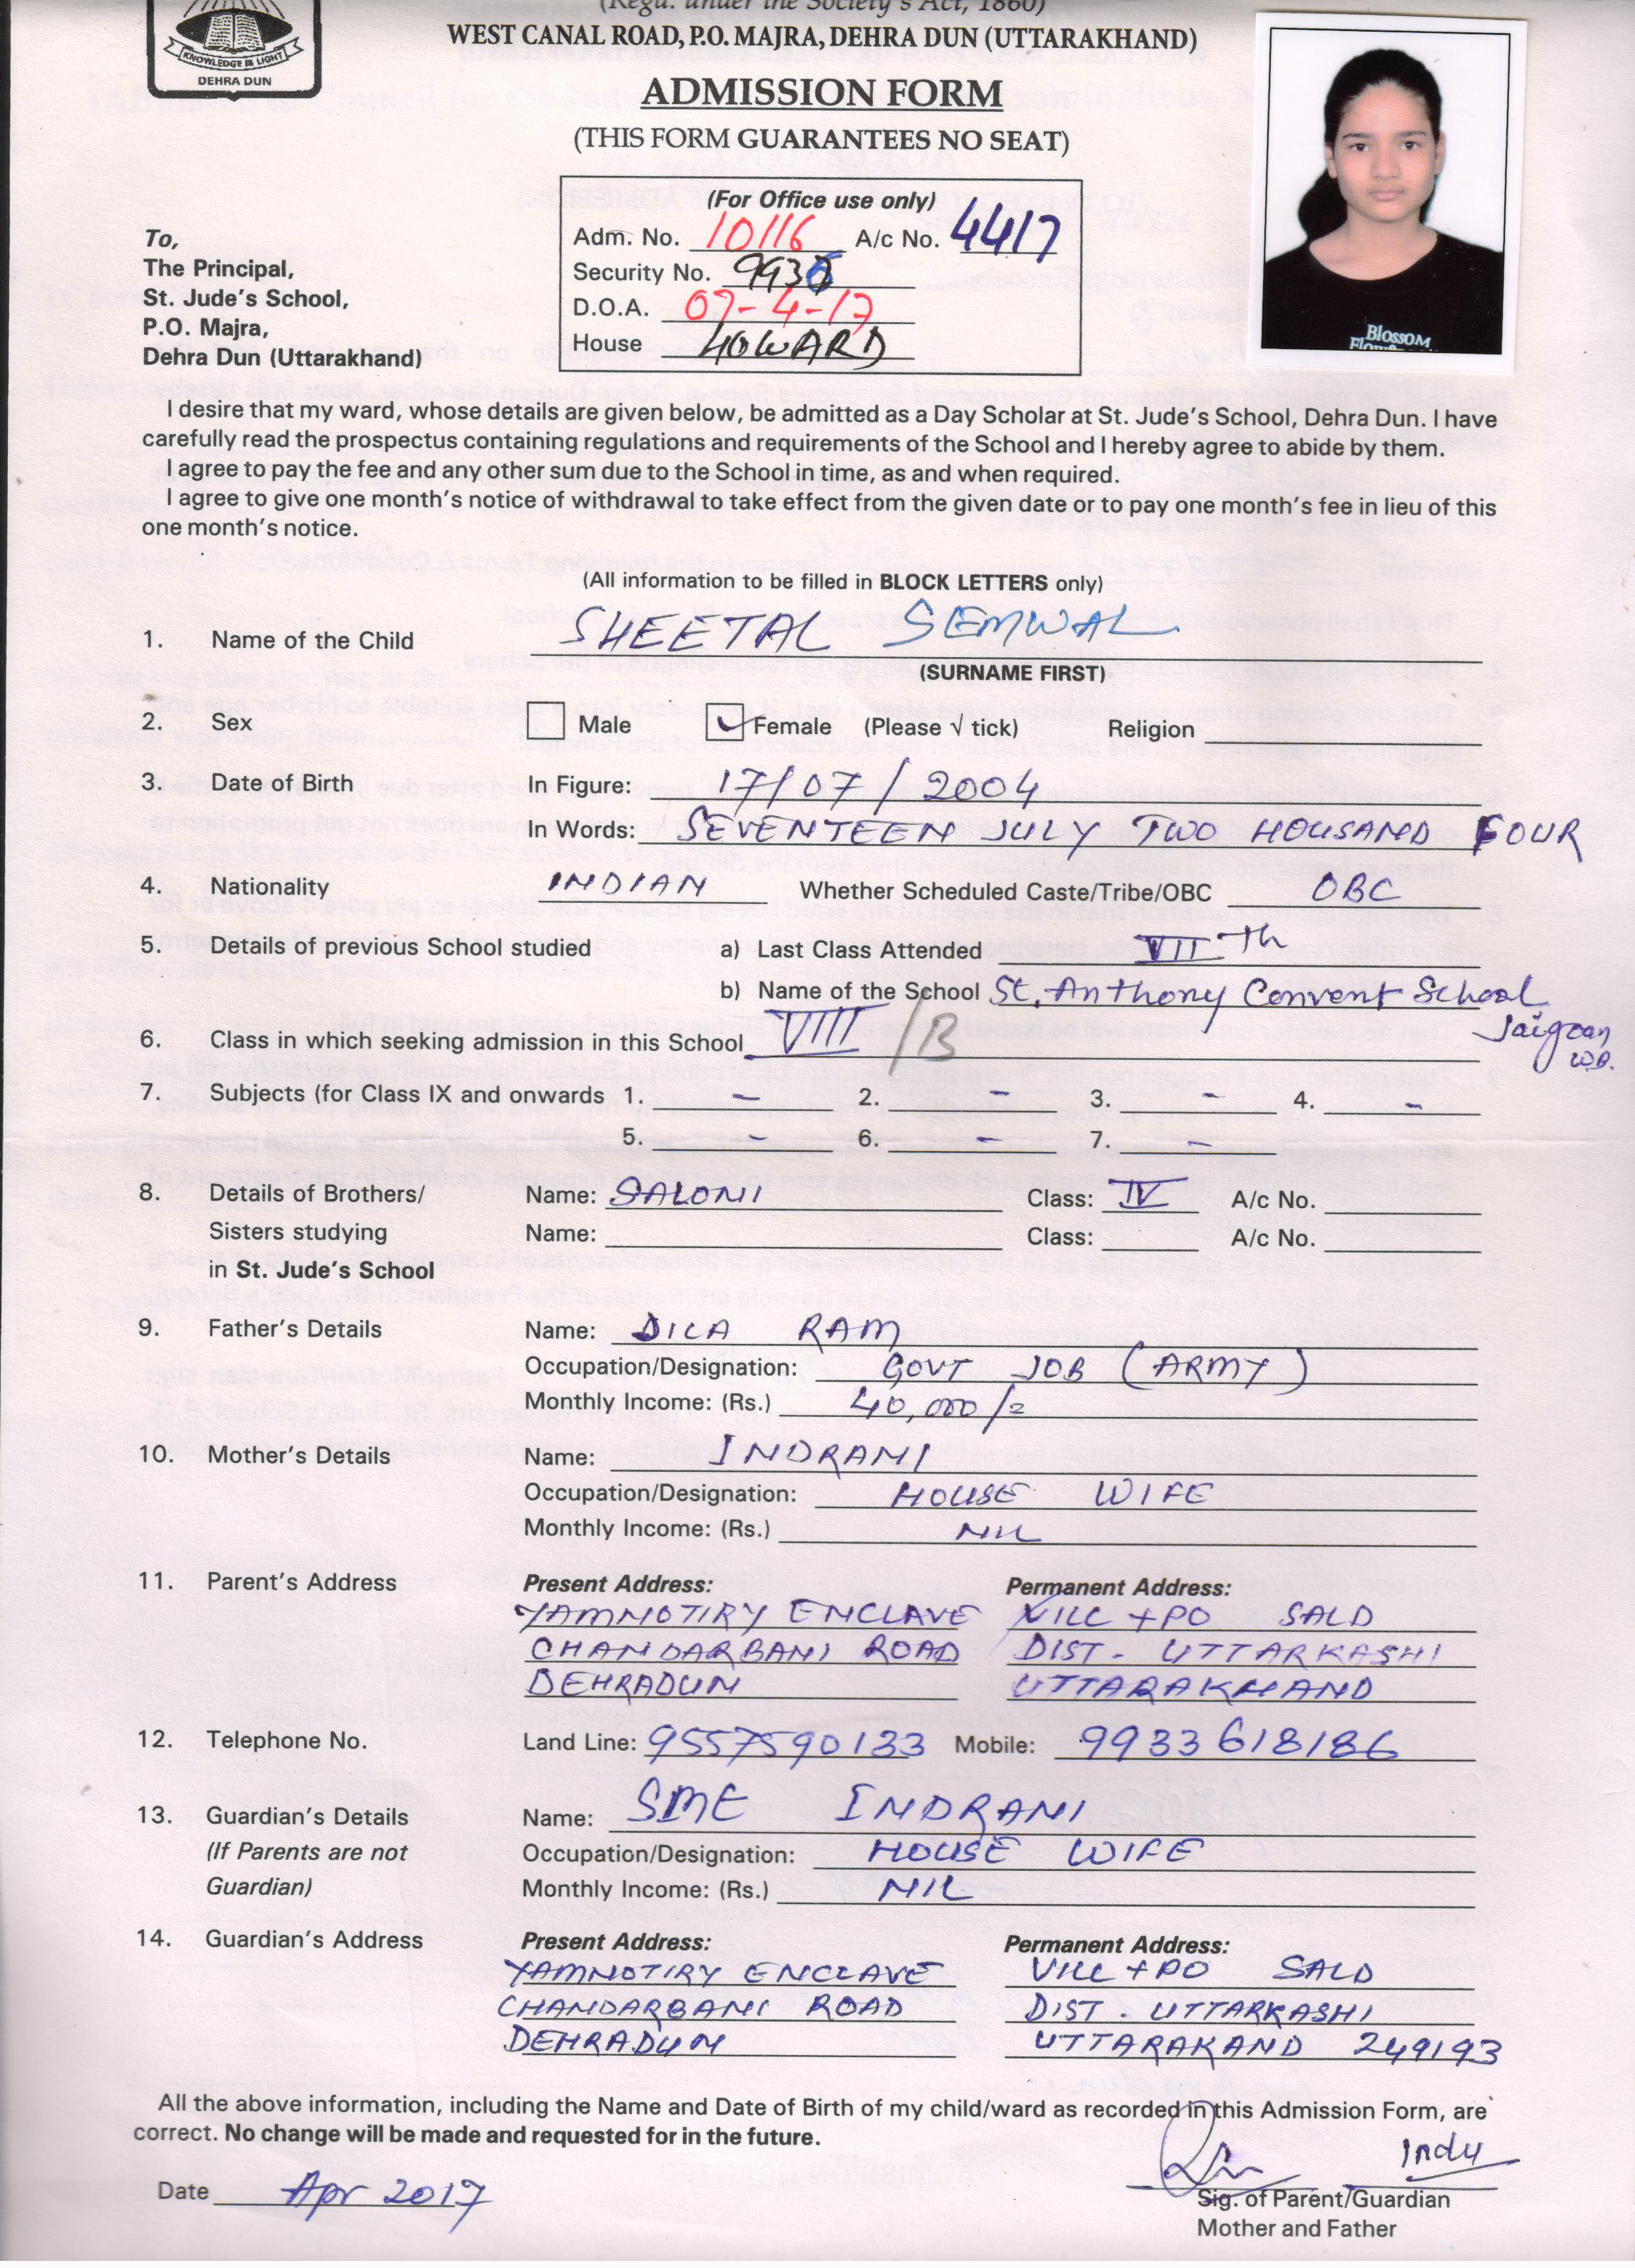 (Regd. under the Society's Act, 1860)
WEST CANAL ROAD, P.O. MAJRA, DEHRA DUN (UTTARAKHAND)
KNOWLEDGE IS LIGHT
DEHRA DUN
ADMISSION FORM
(THIS FORM GUARANTEES NO SEAT)
Blossom
(For Office use only)
Adm. No. 10116 A/c No. 4417
Security No.
D.O.A. 07-4-17
House HOWARD
To,
The Principal,
St. Jude's School,
P.O. Majra,
Dehra Dun (Uttarakhand)
I desire that my ward, whose details are given below, be admitted as a Day Scholar at St. Jude's School, Dehra Dun. I have
carefully read the prospectus containing regulations and requirements of the School and I hereby agree to abide by them.
I agree to pay the fee and any other sum due to the School in time, as and when required.
I agree to give one month's notice of withdrawal to take effect from the given date or to pay one month's fee in lieu of this
one month's notice.
(All information to be filled in BLOCK LETTERS only)
1. Name of the Child SHEETAL SEMWAL
(SURNAME FIRST)
2. Sex Male Female (Please √ tick) Religion
3. Date of Birth In Figure: 17/07/2004
In Words: SEVENTEEN JULY TWO HOUSAND FOUR
4. Nationality INDIAN Whether Scheduled Caste/Tribe/OBC OBC
5. Details of previous School studied a) Last Class Attended VII Th
b) Name of the School St. Anthony Convent School
Jaigoan W.B.
6. Class in which seeking admission in this School VIII /B
7. Subjects (for Class IX and onwards 1. - 2. - 3. - 4. -
5. - 6. - 7. -
8. Details of Brothers/ Name: SALONI Class: IV A/c No.
Sisters studying Name: Class: A/c No.
in St. Jude's School
9. Father's Details Name: DILA RAM
Occupation/Designation: GOVT JOB (ARMY)
Monthly Income: (Rs.) 40,000/=
10. Mother's Details Name: INDRANI
Occupation/Designation: HOUSE WIFE
Monthly Income: (Rs.) NIL
11. Parent's Address Present Address: Permanent Address:
YAMNOTIRY ENCLAVE VILL + PO SALD
CHANDARBANI ROAD DIST - UTTARKASHI
DEHRADUN UTTARAKHAND
12. Telephone No. Land Line: 9557590133 Mobile: 9933618186
13. Guardian's Details Name: SME INDRANI
(If Parents are not Occupation/Designation: HOUSE WIFE
Guardian) Monthly Income: (Rs.) NIL
14. Guardian's Address Present Address: Permanent Address:
YAMNOTIRY ENCLAVE VILL + PO SALD
CHANDARBANI ROAD DIST. UTTARKASHI
DEHRADUN UTTARAKAND 249193
All the above information, including the Name and Date of Birth of my child/ward as recorded in this Admission Form, are
correct. No change will be made and requested for in the future.
Indu
Date Apr 2017
Sig. of Parent/Guardian
Mother and Father